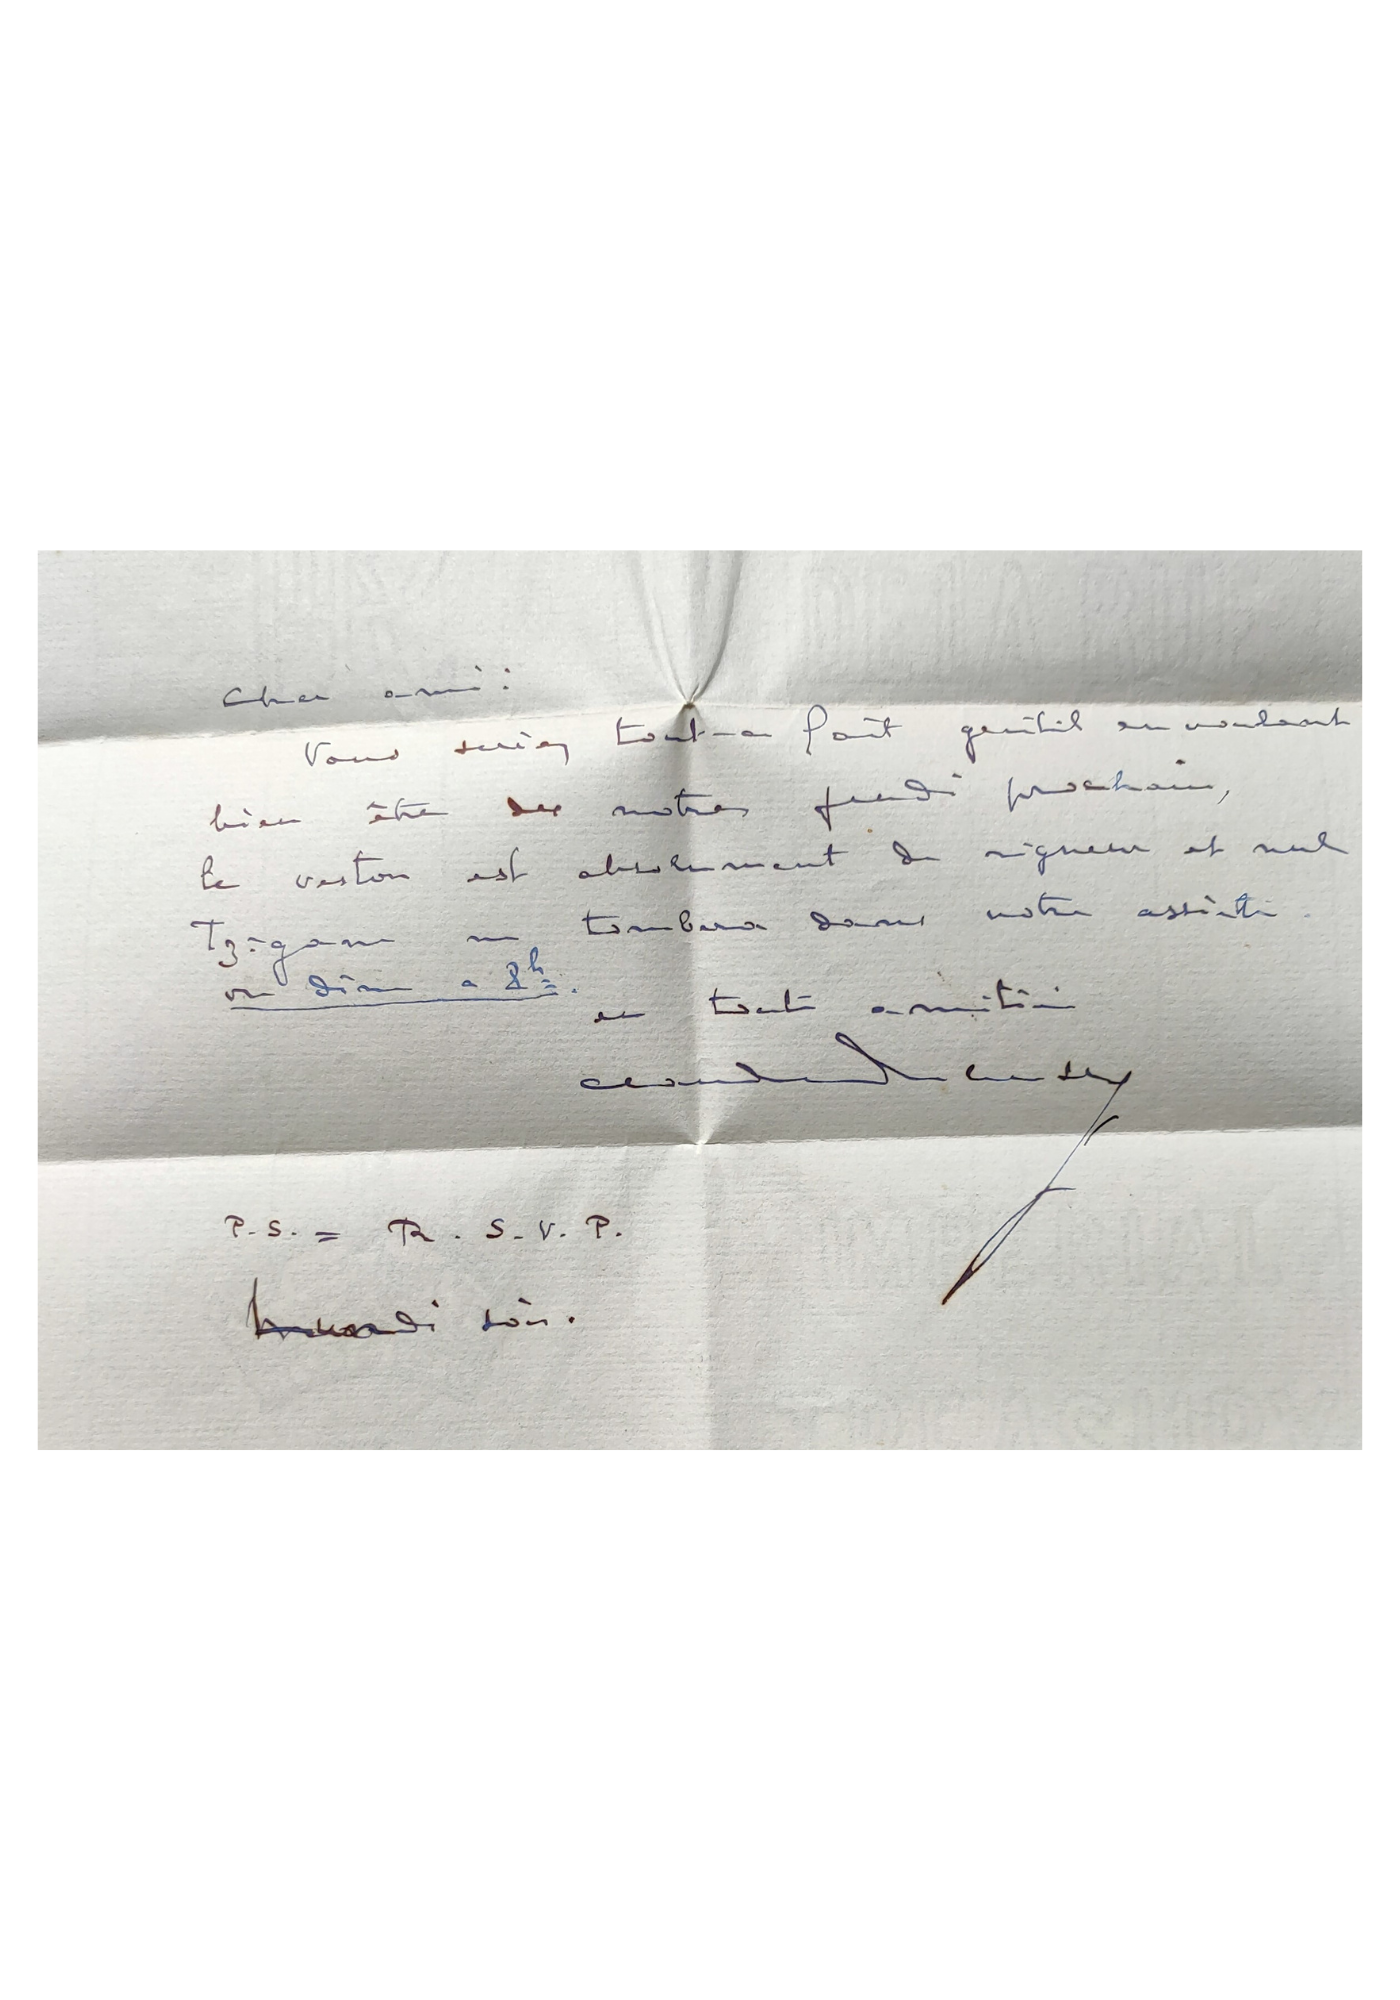 Cher ami :
Vous seriez tout-a fait gentil en voulant
bien être des notres jeudi prochain,
le veston est absolument de rigueur et nul
Tzigane ne tombera dans votre assiette.
on dîne a 8h.
en toute amitié
Claude Debussy
P.S. = R. S. V. P.
mardi soir.